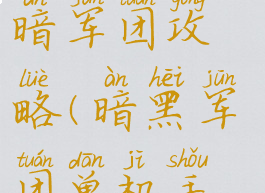 àn jūn tuán gōng
暗军团攻
lüè àn hēi jūn
略(暗黑军
tuán dān jī shǒu
团单机手